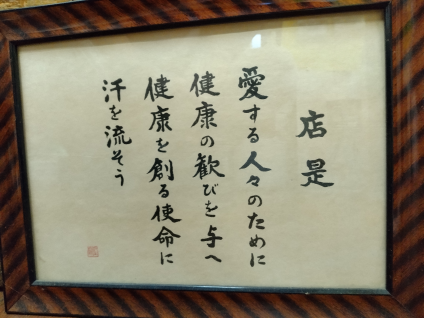 店是
愛する人々のために
健康の歓びを与へ
健康を創る使命に
汗を流そう